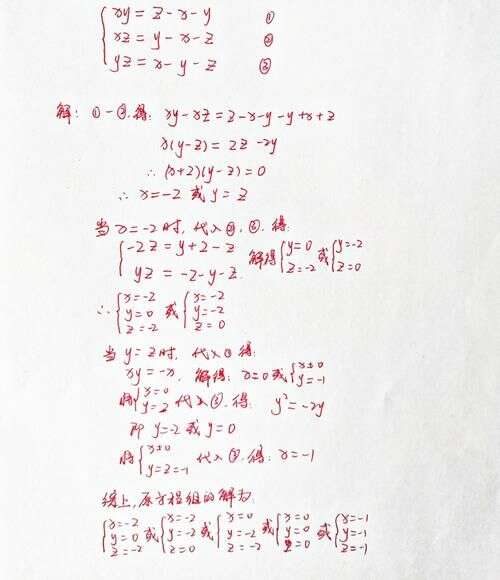 xy = z - x - y ①
xz = y - x - z ②
yz = x - y - z ③
解: ①-②,得: xy - xz = z - x - y - y + x + z
x(y-z) = 2z - 2y
∴ (x+2)(y-z) = 0
∴ x = -2 或 y = z
当 x = -2 时, 代入②,③,得:
{-2z = y + 2 - z
yz = -2 - y - z. 解得 {y=0 z=-2 或 {y=-2 z=0
∴ {x=-2 y=0 z=-2 或 {x=-2 y=-2 z=0
当 y = z 时, 代入①得:
xy = -x, 解得: x=0 或 {x≠0 y=-1
将{x=0 y=z 代入③,得: y² = -2y
即 y=-2 或 y=0
将{x≠0 y=z=-1 代入③,得: x=-1
综上,原方程组的解为:
{x=-2 y=0 z=-2 或 {x=-2 y=-2 z=0 或 {x=0 y=-2 z=-2 或 {x=0 y=0 z=0 或 {x=-1 y=-1 z=-1